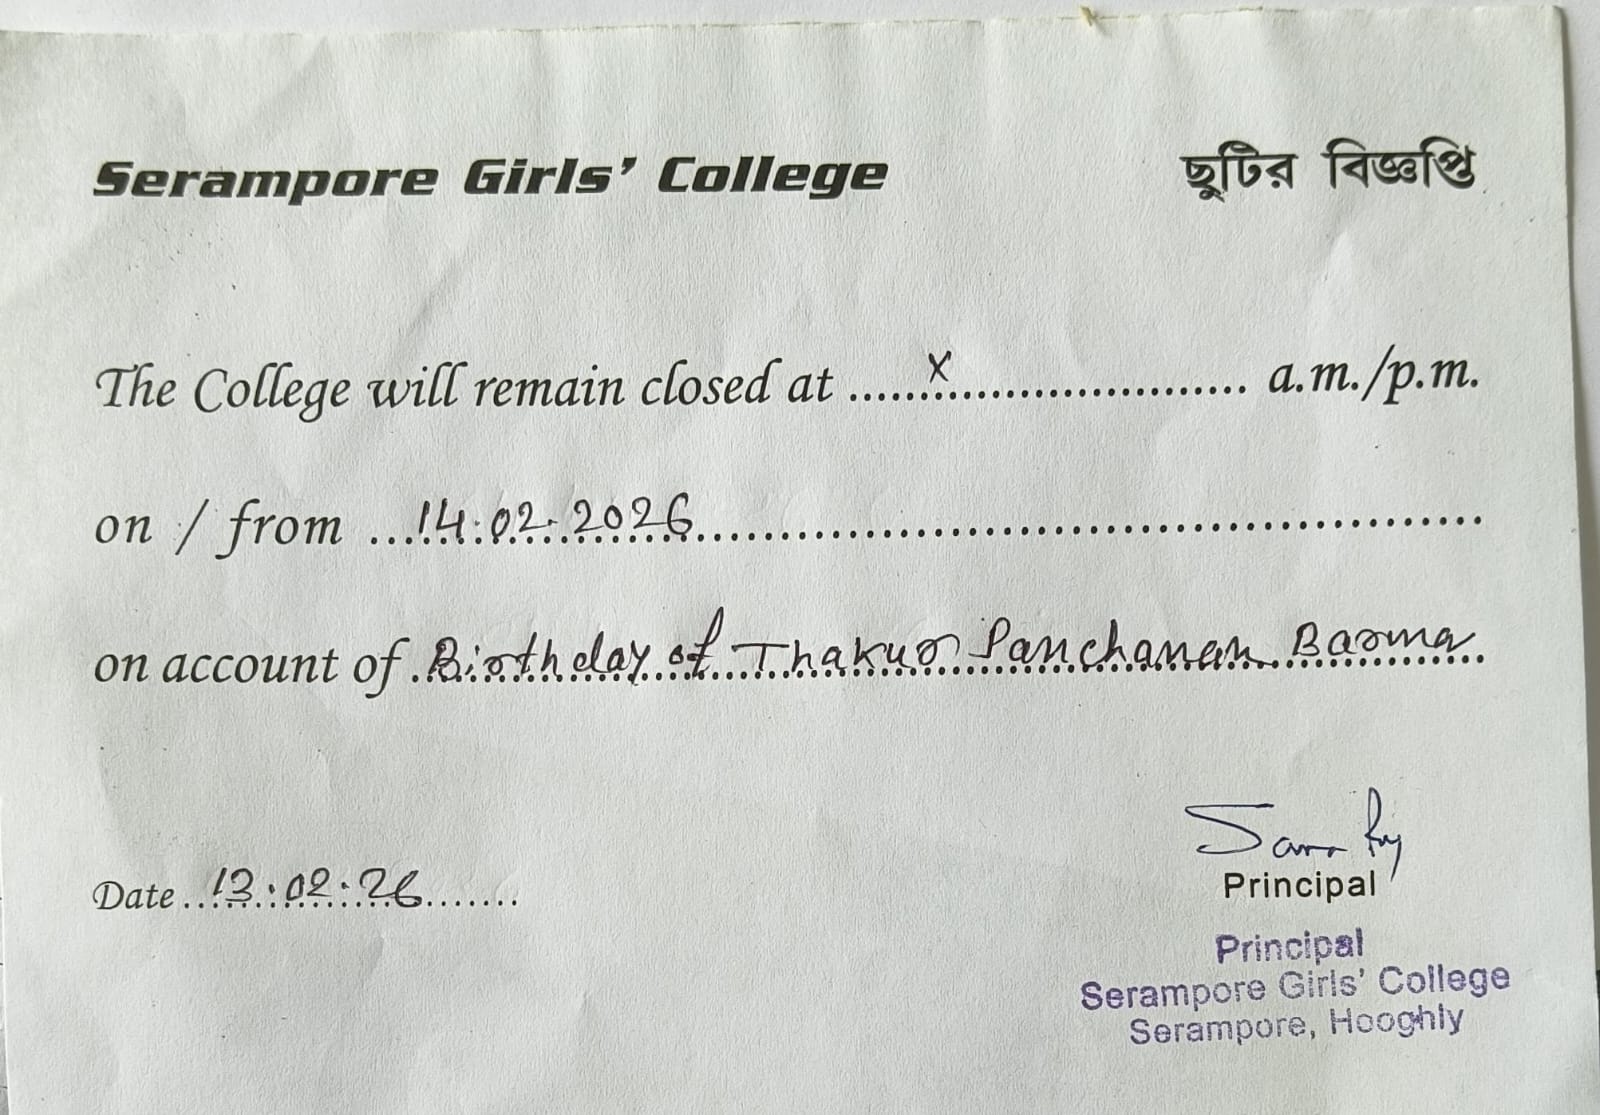 Serampore Girls' College ছুটির বিজ্ঞপ্তি
The College will remain closed at ......x.......................... a.m./p.m.
on / from ...14.02.2026..........................................................
on account of .Birthday of Thakur Panchanan Barma.
Date ..13.02.26.......
Principal
Principal
Serampore Girls' College
Serampore, Hooghly